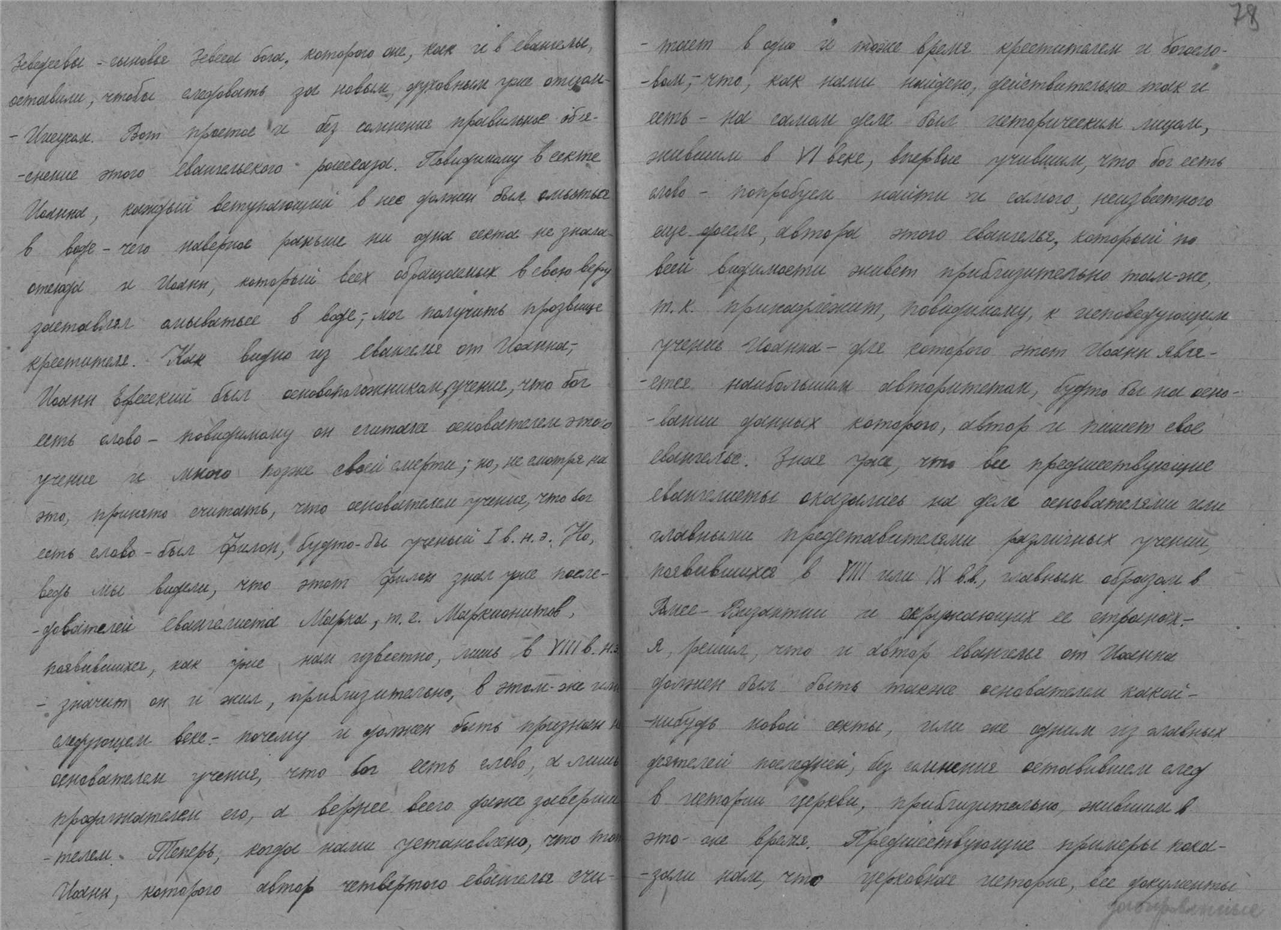 Зеведеевы - сыновья Зевеса бога, которого они, как и в евангелье,
оставили, чтобы следовать за новым, духовным уже отцом-
- Иисусом. Вот простое и без сомнения правильное объя-
-снение этого евангельского рассказа. Повидимому в секте
Иоанна, каждый вступающий в нее должен был омыться
в воде - чего наверное раньше ни одна секта не знала-
отсюда и Иоанн, который всех обращаемых в свою веру
заставлял омываться в воде, - мог получить прозвище
крестителя. Как видно из евангелья от Иоанна, -
Иоанн Ефесский был основоположником учения, что бог
есть слово - повидимому он считался основателем этого
учения и много позже своей смерти; но, не смотря на
это, принято считать, что основателем учения, что бог
есть слово - был Филон, будто-бы ученый I в. н. э. Но,
ведь мы видели, что этот Филон знал уже после-
-дователей евангелиста Марка, т. е. Маркионитов,
появившихся, как уже нам известно, лишь в VIII в. н.э
- значит он и жил, приблизительно, в этом-же или
следующем веке - почему и должен быть признан не
основателем учения, что бог есть слово, а лишь
продолжателем его, а вернее всего даже заверши
-телем. Теперь, когда нами установлено, что тот
Иоанн, которого автор четвертого евангелья счи-
78
- тает в одно и тоже время крестителем и богосло-
-вом, - что, как нами найдено, действительно так и
есть - на самом деле был историческим лицом,
жившим в VI веке, впервые учившим, что бог есть
слово - попробуем найти и самого, неизвестного
еще доселе, автора этого евангелья, который по
всей видимости живет приблизительно там-же,
т. к. принадлежит, повидимому, к исповедующим
учение Иоанна - для которого этот Иоанн явля-
-ется наибольшим авторитетом, будто бы на осно-
-вании данных которого, автор и пишет свое
евангелье. Зная уже, что все предшествующие
евангелисты оказались на деле основателями или
главными представителями различных учений,
появившихся в VIII или IX в.в., главным образом в
Ромее - Византии и окружающих ее странах. -
Я решил, что и автор евангелья от Иоанна
должен был быть также основателем какой-
-нибудь новой секты, или же одним из главных
деятелей последней, без сомнения оставившем след
в истории церкви, приблизительно, жившим в
это-же время. Предшествующие примеры пока-
-зали нам, что церковная история, все документы